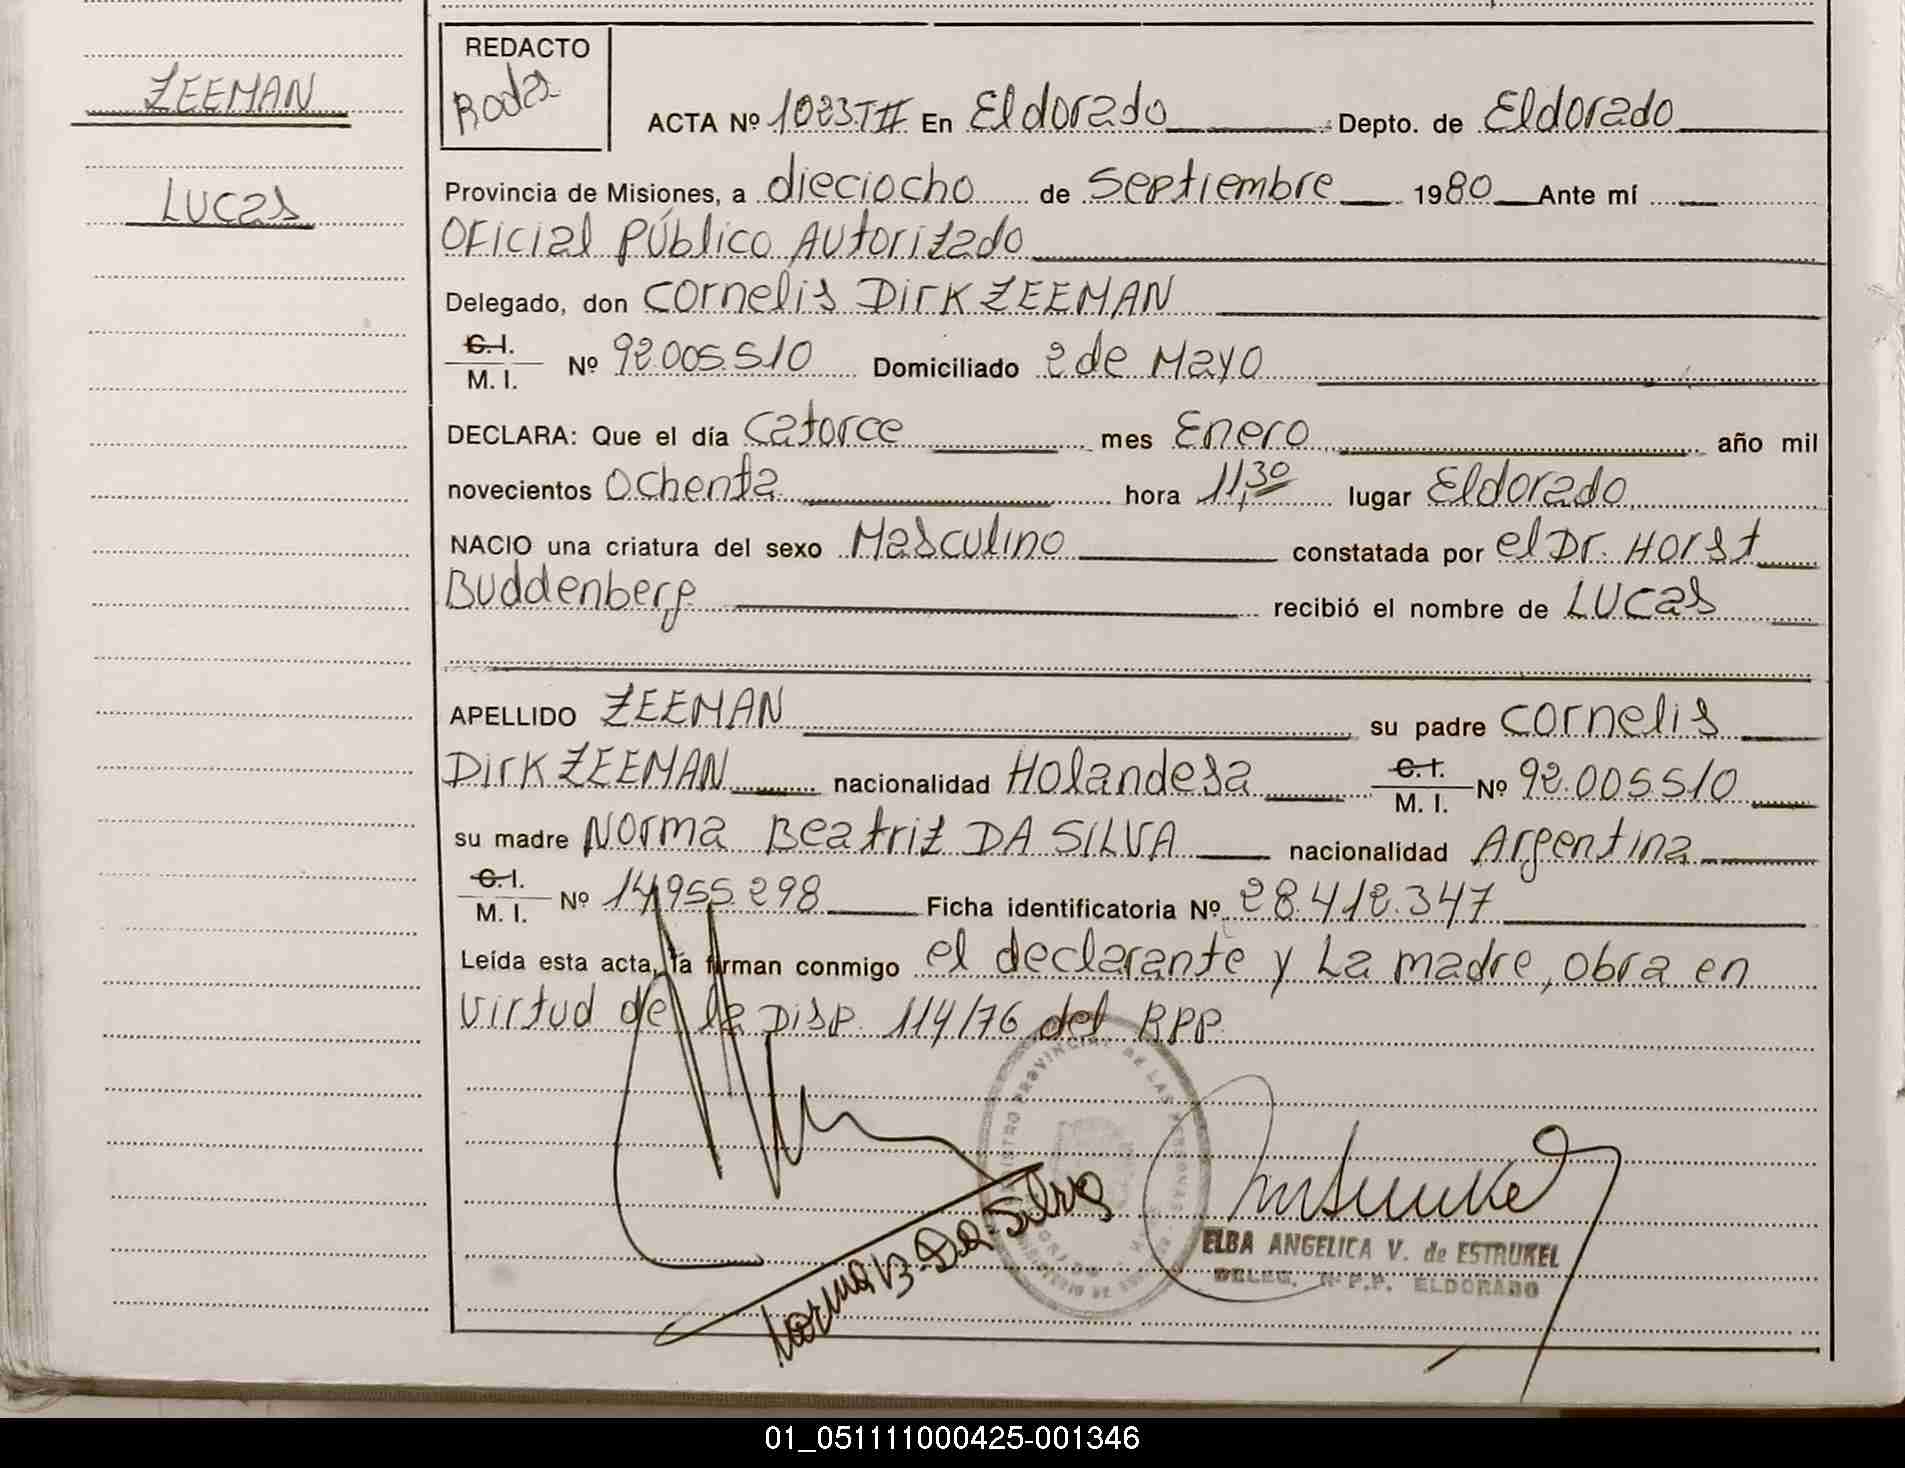 ZEEMAN
LUCas
REDACTO
Rodas
ACTA Nº 1023TII En Eldorado Depto. de Eldorado
Provincia de Misiones, a dieciocho de Septiembre 1980 Ante mí
Oficial Público Autorizado
Delegado, don Cornelis Dirk ZEEMAN
C.I. M. I. Nº 92.005.510 Domiciliado 2 de Mayo
DECLARA: Que el día Catorce mes Enero año mil
novecientos Ochenta hora 11,30 lugar Eldorado
NACIO una criatura del sexo Masculino constatada por el Dr. Horst
Buddenberg recibió el nombre de LUCas
APELLIDO ZEEMAN su padre Cornelis
Dirk ZEEMAN nacionalidad Holandesa C.I. M. I. Nº 92.005510
su madre Norma Beatriz DA SILVA nacionalidad Argentina
C.I. M. I. Nº 14.955.298 Ficha identificatoria Nº 28.412.347
Leída esta acta, la firman conmigo el declarante y La madre, obra en
virtud de la Disp. 114/76 del RPP.
REGISTRO PROVINCIAL DE LAS PERSONAS
Norma B. Da Silva
ELBA ANGELICA V. de ESTRUKEL
DELEG. R.P.P. ELDORADO
01_051111000425-001346